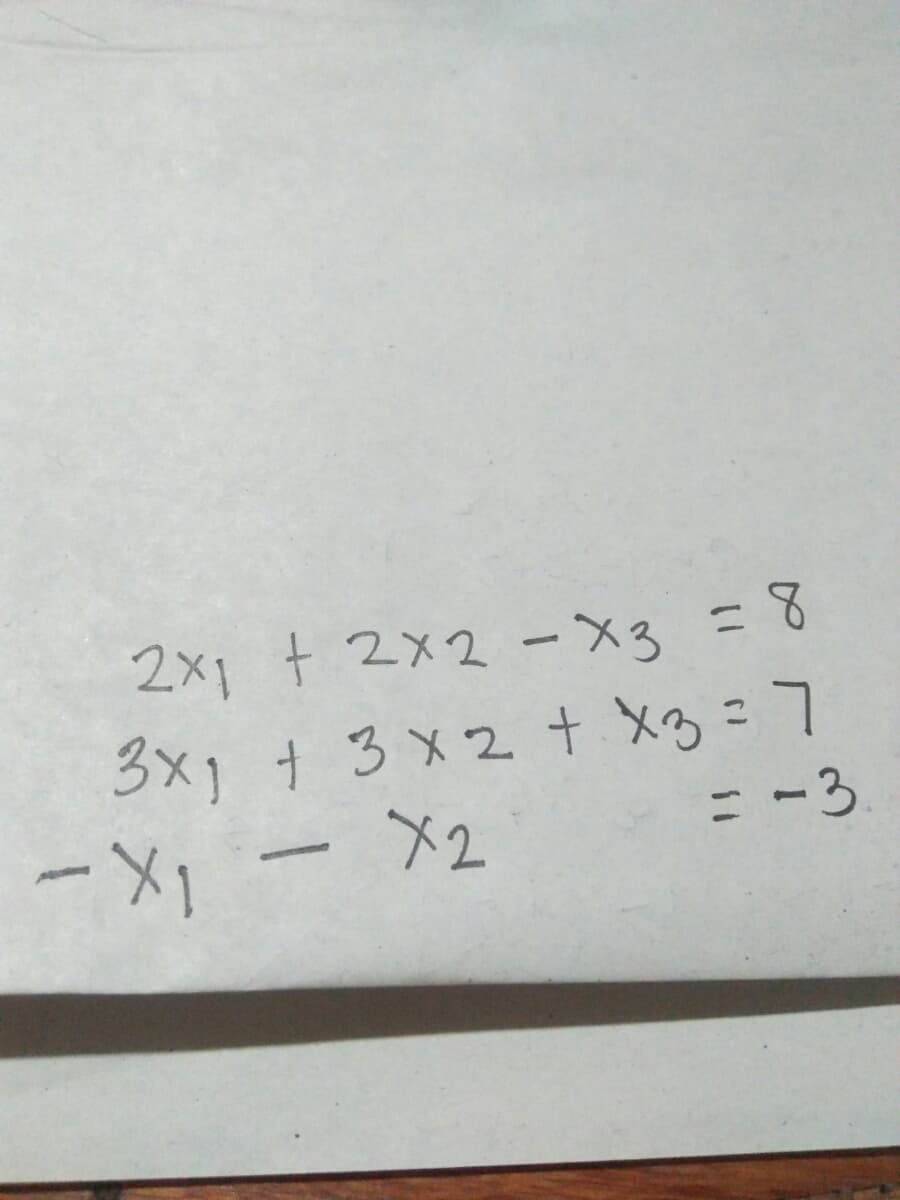 2x₁ + 2x2 - x₃ = 8
3x₁ + 3x2 + x₃ = 7
-x₁ - x₂ = -3